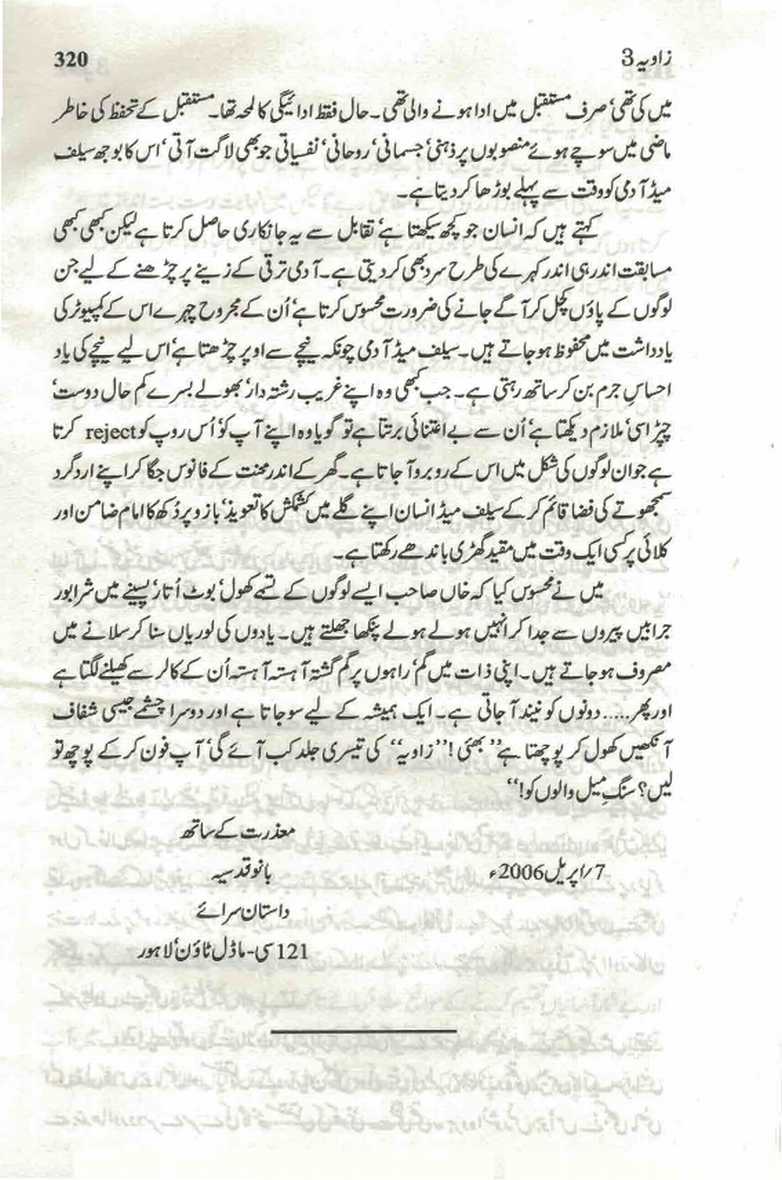 زاویہ 3
320
میں کی تھی‘ صرف مستقبل میں ادا ہونے والی تھی۔ حال فقط ادائیگی کا لمحہ تھا۔ مستقبل کے تحفظ کی خاطر
ماضی میں سوچے ہوئے منصوبوں پر ذہنی‘ جسمانی‘ روحانی‘ نفسیاتی جو بھی لاگت آتی‘ اس کا بوجھ سیلف
میڈ آدمی کو وقت سے پہلے بوڑھا کر دیتا ہے۔
کہتے ہیں کہ انسان جو کچھ سیکھتا ہے‘ تقابل سے یہ جانکاری حاصل کرتا ہے لیکن کبھی کبھی
مسابقت اندر ہی اندر کہرے کی طرح سرد بھی کر دیتی ہے۔ آدمی ترقی کے زینے پر چڑھنے کے لیے جن
لوگوں کے پاؤں کچل کر آگے جانے کی ضرورت محسوس کرتا ہے‘ اُن کے مجروح چہرے اس کے کمپیوٹر کی
یادداشت میں محفوظ ہو جاتے ہیں۔ سیلف میڈ آدمی چونکہ نیچے سے اوپر چڑھتا ہے‘ اس لیے نیچے کی یاد
احساسِ جرم بن کر ساتھ رہتی ہے۔ جب کبھی وہ اپنے غریب رشتہ دار‘ بھولے بسرے کم حال دوست‘
چپڑاسی‘ ملازم دیکھتا ہے‘ اُن سے بے اعتنائی برتتا ہے تو گویا وہ اپنے آپ کو‘ اُس روپ کو reject کرتا
ہے جو ان لوگوں کی شکل میں اس کے روبرو آ جاتا ہے۔ گھر کے اندر محنت کے فانوس جگا کر اپنے اردگرد
سمجھوتے کی فضا قائم کر کے سیلف میڈ انسان اپنے گلے میں کشمکش کا تعویذ‘ بازو پر دُکھ کا امام ضامن اور
کلائی پر کسی ایک وقت میں مقید گھڑی باندھے رکھتا ہے۔
میں نے محسوس کیا کہ خاں صاحب ایسے لوگوں کے تسمے کھول‘ بوٹ اُتار‘ پسینے میں شرابور
جرابیں پیروں سے جدا کر انہیں ہولے ہولے پنکھا جھلتے ہیں۔ یادوں کی لوریاں سنا کر سلانے میں
مصروف ہو جاتے ہیں۔ اپنی ذات میں گم‘ راہوں پر گم گشتہ آہستہ آہستہ اُن کے کالر سے کھیلنے لگتا ہے
اور پھر..... دونوں کو نیند آ جاتی ہے۔ ایک ہمیشہ کے لیے سو جاتا ہے اور دوسرا چشمے جیسی شفاف
آنکھیں کھول کر پوچھتا ہے ’’بھئی! ’’زاویہ‘‘ کی تیسری جلد کب آئے گی‘ آپ فون کر کے پوچھ تو
لیں؟ سنگِ میل والوں کو!‘‘
معذرت کے ساتھ
7/اپریل 2006ء
بانو قدسیہ
داستان سرائے
121 سی- ماڈل ٹاؤن‘ لاہور